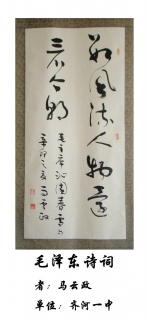 数风流人物还
看今朝
毛主席沁园春雪句
辛卯之夏马云政
毛泽东诗词
者：马云政
单位：齐河一中